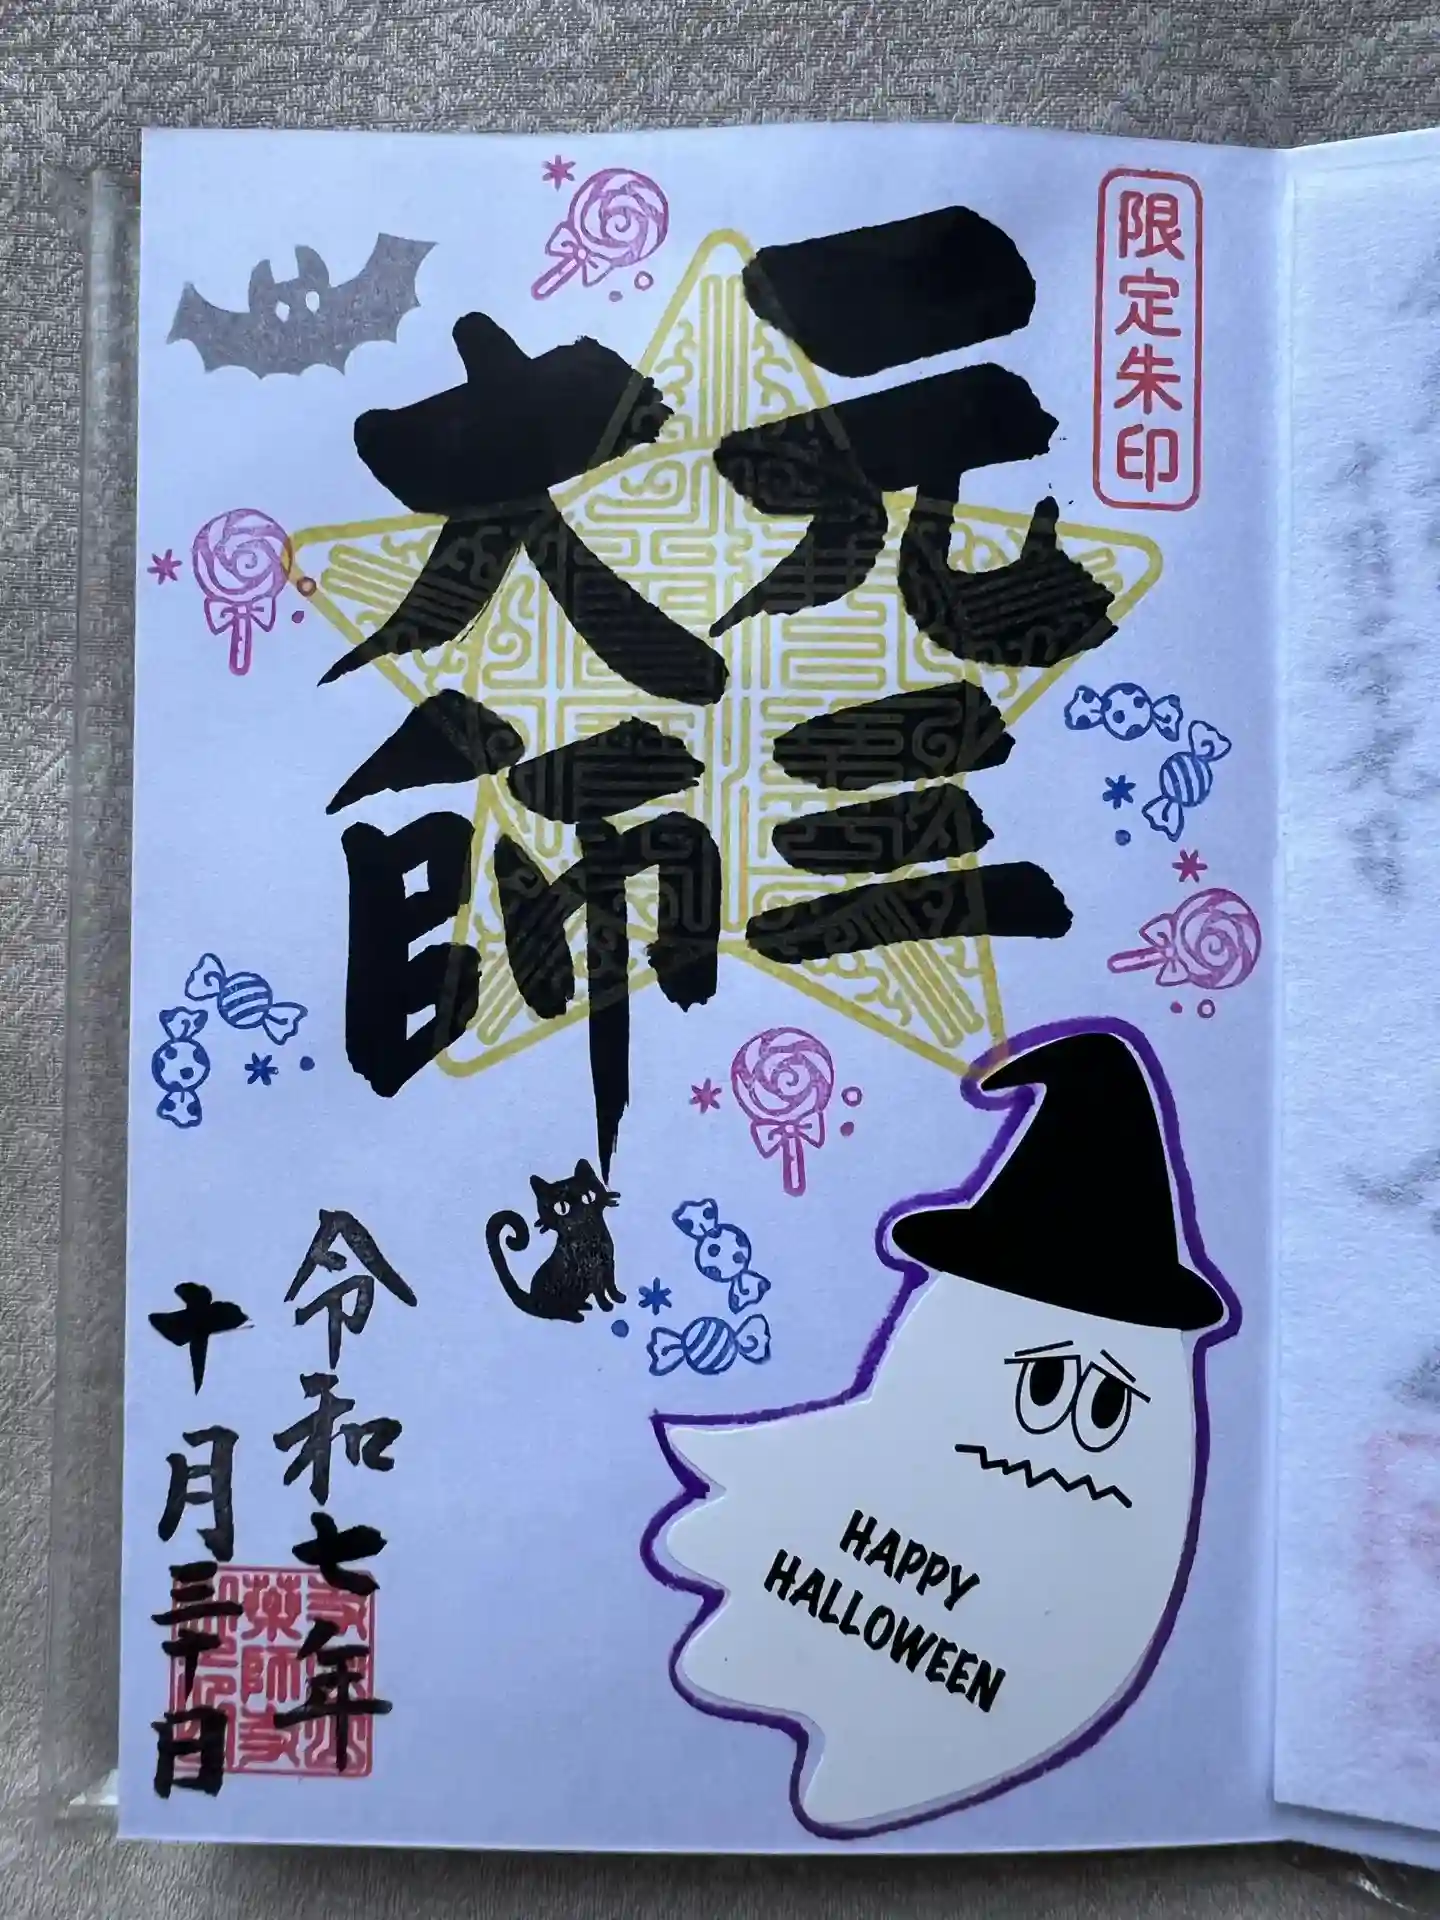 限定朱印
元三
大師
令和七年
十月三十日
HAPPY
HALLOWEEN